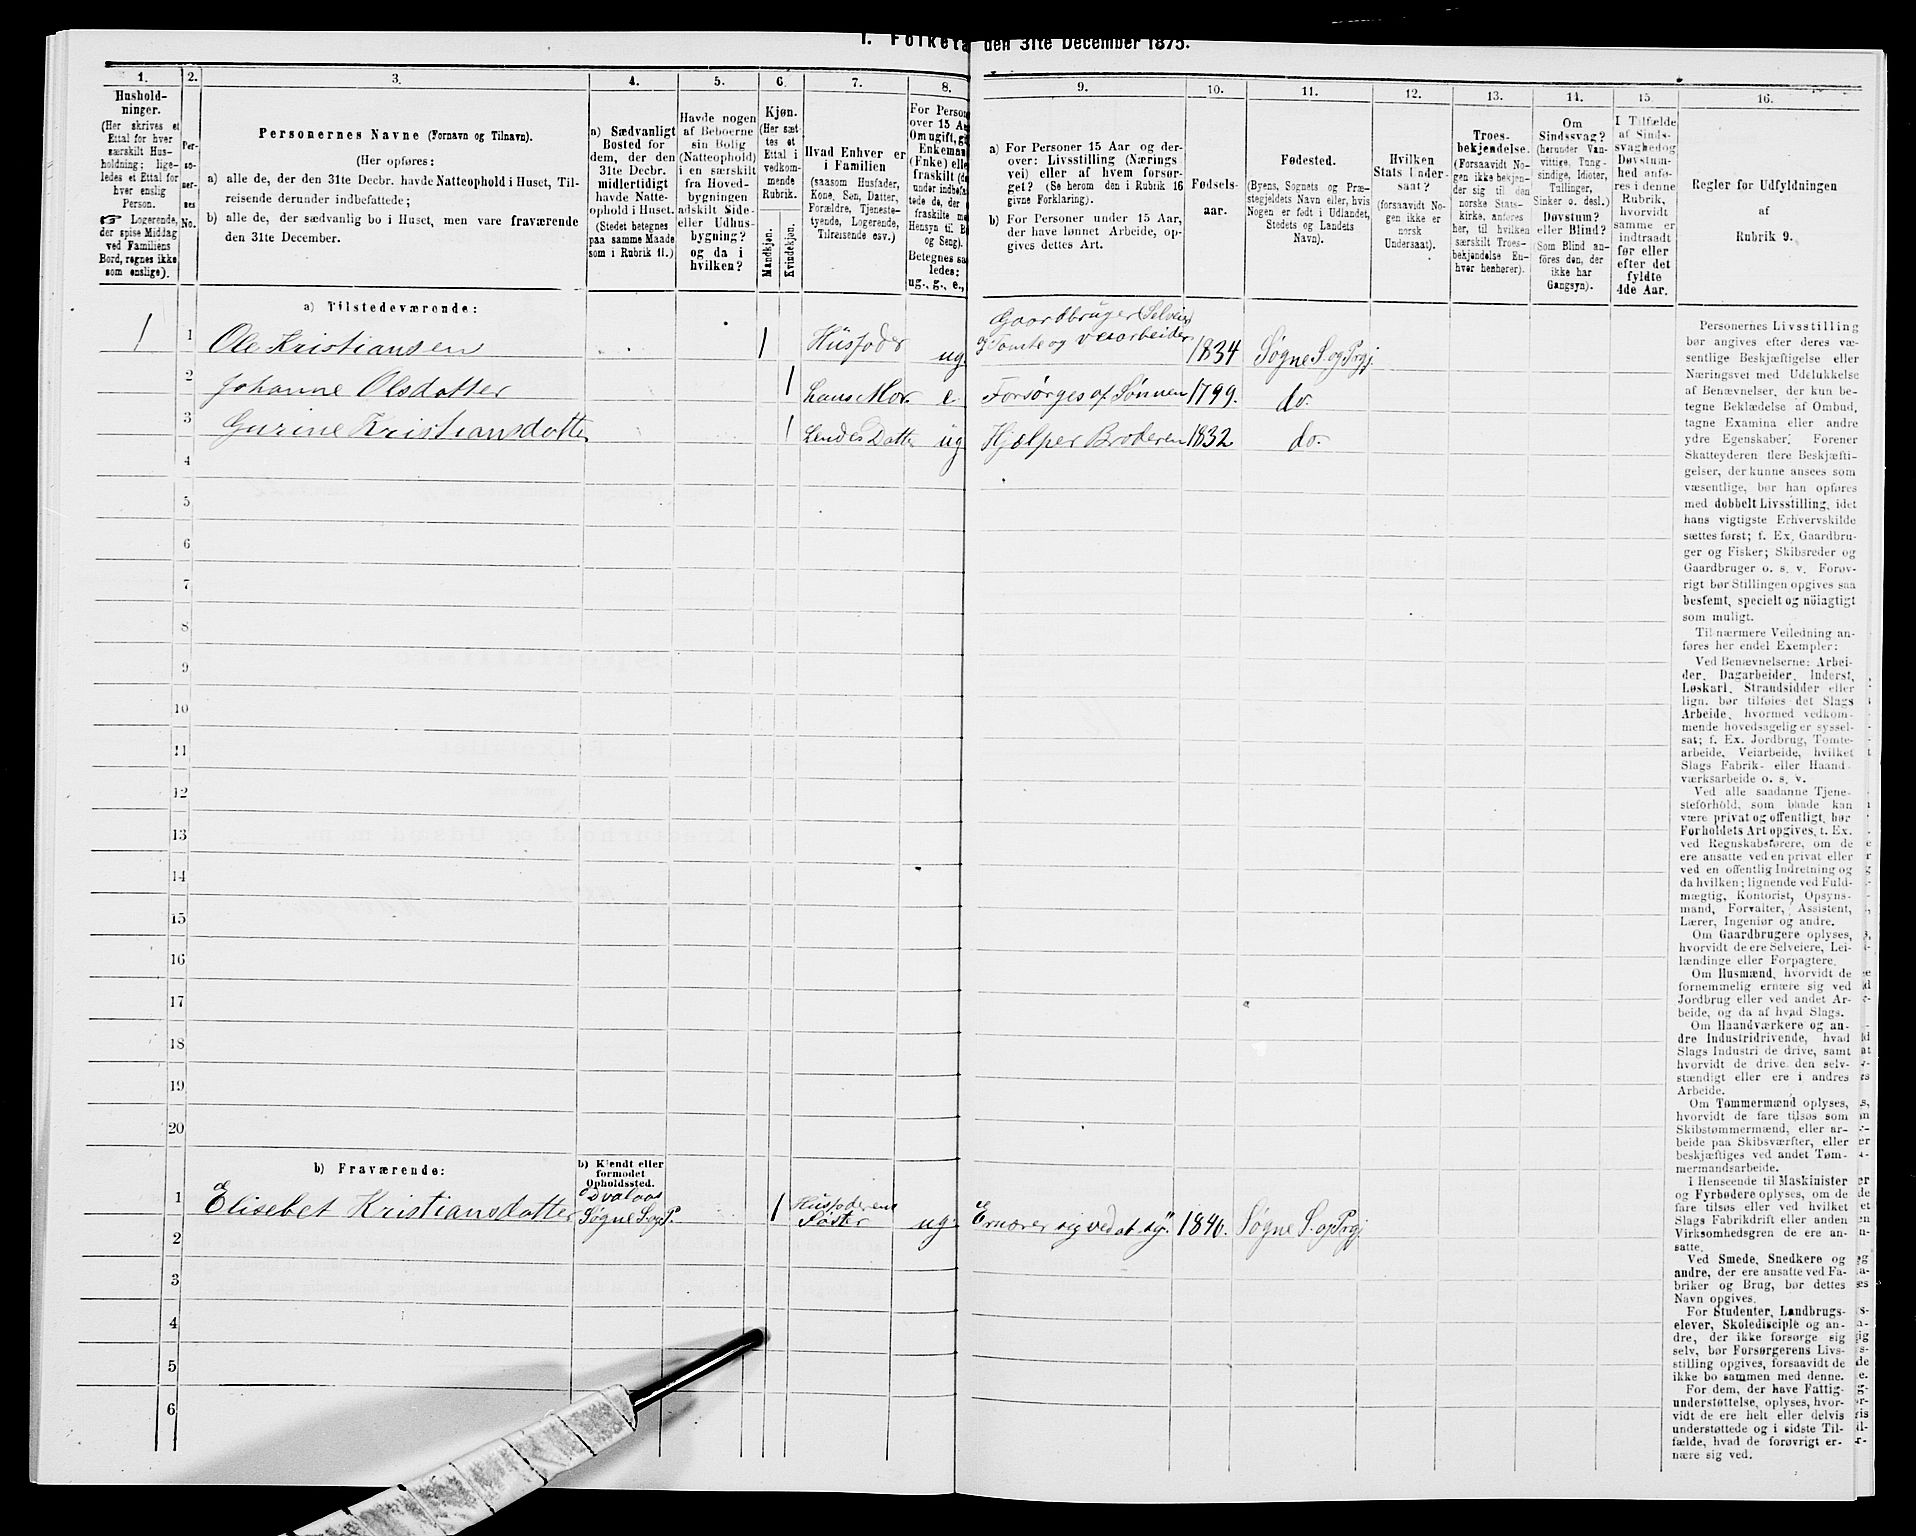 I. Folketæ den 31te December 1875.
1. 2. 3. 4. 5. 6. 7. 8. 9. 10. 11. 12. 13. 14. 15. 16.
Hushold-
ninger.
(Her skrives et
Ettal for hver
særskilt Hus-
holdning; lige-
ledes et Ettal for
hver enslig
Person.
☞ Logerende,
der spise Middag
ved Familiens
Bord, regnes ikke
som enslige).
Per-
so-
ner-
nes
No.
Personernes Navne (Fornavn og Tilnavn).
(Her opføres:
a) alle de, der den 31te Decbr. havde Natteophold i Huset, Til-
reisende derunder indbefattede;
b) alle de, der sædvanlig bo i Huset, men vare fraværende
den 31te December.
a) Sædvanligt
Bosted for
dem, der den
31te Decbr.
midlertidigt
havde Natte-
ophold i Huset.
(Stedet betegnes
paa samme Maade
som i Rubrik 11.)
Havde nogen
af Beboerne
sin Bolig
(Natteophold)
i en særskilt
fra Hoved-
bygningen
adskilt Side-
eller Udhus-
bygning?
og da i
hvilken?
Kjøn.
(Her sæt
tes et
Ettal i
vedkom-
mende
Rubrik.
Mandkjøn.
Kvindekjøn.
Hvad Enhver er
i Familien
(saasom Husfader,
Kone, Søn, Datter,
Forældre, Tjeneste-
tyende, Logerende,
Tilreisende osv.)
For Person
over 15 Aa
Om ugift, gi
Enkeman
(Enke) elle
fraskilt (de
under indbefat
tede de, der
fraskilte me
Hensyn til B
og Seng).
Betegnes saa
ledes:
ug., g., e.,
a) For Personer 15 Aar og der-
over: Livsstilling (Nærings
vei) eller af hvem forsør-
get? (Se herom den i Rubrik 16
givne Forklaring).
b) For Personer under 15 Aar,
der have lønnet Arbeide, op-
gives dettes Art.
Fødsels-
aar.
Fødested.
(Byens, Sognets og Præ-
stegjeldets Navn eller, hvis
Nogen er født i Udlandet,
Stedets og Landets
Navn).
Hvilken
Stats Under-
saat?
(forsaavidt No-
gen ikke er
norsk
Undersaat).
Troes-
bekjendelse.
(Forsaavidt No-
gen ikke bekjen-
der sig til den
norske Stats-
kirke, anføres
her, til hvilken
særskilt Troes-
bekjendelse En-
hver henhører).
Om
Sindssvag?
(herunder Van-
vittige, Tung-
sindige, Idioter,
Tullinger,
Sinker o. desl.)
Døvstum?
eller Blind?
(Som Blind an-
føres den, der
ikke har
Gangsyn).
I Tilfælde
af Sinds-
svaghed og
Døvstum-
hed anfø-
res i denne
Rubrik,
hvorvidt
samme er
indtraadt
før eller
efter det
fyldte
4de Aar.
Regler for Udfyldningen
af
Rubrik 9.
a) Tilstedeværende:
1 1 Ole Kristiansen 1 Husfader ug. Gaardbruger Selveier og Tomte og veiarbeider 1834 Søgne S. og Prgj.
2 Johanne Olsdatter 1 hans Mor. e. Forsørges af Sønnen 1799. do.
3 Gurine Kristiansdatter 1 hendes Datter ug Hjælper Broderen 1832 do.
4
5
6
7
8
9
10
11
12
13
14
15
16
17
18
19
20
b) Fraværende: b) Kjendt eller
formodet
Opholdssted.
1 Elisebet Kristiansdatter Søgne S. og P. 1 Husfaderens Søster ug. Ernærer sig ved at sy 1840. Søgne S. og Prgj.
2
3
4
5
6
Personernes Livsstilling
bør angives efter deres væ-
sentlige Beskjæftigelse eller
Næringsvei med Udelukkelse
af Benævnelser, der kun be-
tegne Beklædelse af Ombud,
tagne Examina eller andre
ydre Egenskaber. Forener
Skatteyderen flere Beskjæfti-
gelser, der kunne ansees som
væsentlige, bør han opføres
med dobbelt Livsstilling, idet
hans vigtigste Erhvervskilde
sættes først; f. Ex. Gaardbru-
ger og Fisker; Skibsreder og
Gaardbruger o. s. v. Forøv-
rigt bør Stillingen opgives saa
bestemt, specielt og nöiagtigt
som muligt.
Til nærmere Veiledning an-
føres her endel Exempler:
Ved Benævnelserne: Arbei-
der, Dagarbeider, Inderst,
Løskarl, Strandsidder eller
lign. bør tilføies det Slags
Arbeide, hvormed vedkom-
mende hovedsagelig er syssel-
sat; f. Ex. Jordbrug, Tomte-
arbeide, Veiarbeide, hvilket
Slags Fabrik- eller Haand-
værksarbeide o. s. v.
Ved alle saadanne Tjene-
steforhold, som baade kan
være privat og offentligt, bør
Forholdets Art opgives, t. Ex.
ved Regnskabsførere, om de
ere ansatte ved en privat eller
ved en offentlig Indretning og
da hvilken; lignende ved Fuld-
mægtig, Kontorist, Opsyns-
mand, Forvalter, Assistent,
Lærer, Ingeniør og andre.
Om Gaardbrugere oplyses,
hvorvidt de ere Selveiere, Lei-
lændinge eller Forpagtere.
Om Husmænd, hvorvidt de
fornemmelig ernære sig ved
Jordbrug eller ved andet Ar-
beide, og da af hvad Slags.
Om Haandværkere og an-
dre Industridrivende, hvad
Slags Industri de drive, samt
hvorvidt de drive den selv-
stændigt eller ere i andres
Arbeide.
Om Tømmermænd oplyses,
hvorvidt de fare tilsøs som
Skibstømmermænd, eller ar-
beide paa Skibsværfter, eller
beskjæftiges ved andet Tøm-
mermandsarbeide.
I Henseende til Maskinister
og Fyrbødere oplyses, om de
fare tilsøs eller ved hvilket
Slags Fabrikdrift eller anden
Virksomhedsgren de ere an-
satte.
Ved Smede, Snedkere og
andre, der ere ansatte ved Fa-
briker og Brug, bør dettes
Navn opgives.
For Studenter, Landbrugs-
elever, Skoledisciple og an-
dre, der ikke forsørge sig
selv, bør Forsørgerens Livs-
stilling opgives, forsaavidt de
ikke bo sammen med denne.
For dem, der have Fattig-
understøttelse, oplyses, hvor-
vidt de ere helt eller delvis
understøttede og i sidste Til-
fælde, hvad de forøvrigt er-
nære sig ved.